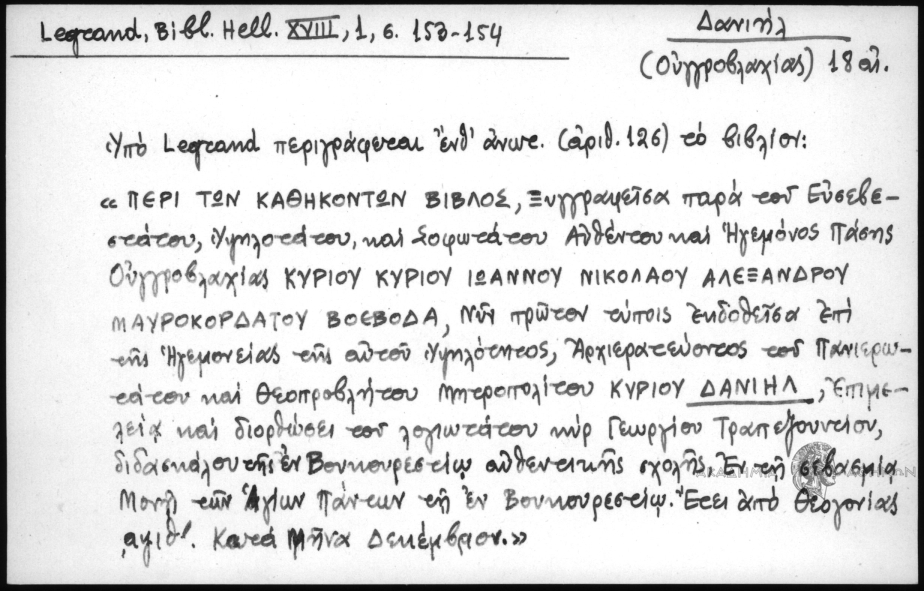 Legrand, Bibl. Hell. XVIII, 1, σ. 153-154
Δανιήλ
(Οὑγγροβλαχίας) 18 αἰ.
Ὑπό Legrand περιγράφεται ἔνθ' ἀνωτ. (ἀριθ. 126) τό βιβλίον:
« ΠΕΡΙ ΤΩΝ ΚΑΘΗΚΟΝΤΩΝ ΒΙΒΛΟΣ, Ξυγγραφεῖσα παρά τοῦ Εὐσεβε-
στάτου, Ὑψηλοτάτου, καί Σοφωτάτου Αὐθέντου καί Ἡγεμόνος Πάσης
Οὑγγροβλαχίας ΚΥΡΙΟΥ ΚΥΡΙΟΥ ΙΩΑΝΝΟΥ ΝΙΚΟΛΑΟΥ ΑΛΕΞΑΝΔΡΟΥ
ΜΑΥΡΟΚΟΡΔΑΤΟΥ ΒΟΕΒΟΔΑ, Νῦν πρῶτον τύποις ἐκδοθεῖσα ἐπί
τῆς Ἡγεμονείας τῆς αὐτοῦ Ὑψηλότητος, Ἀρχιερατεύοντος τοῦ Πανιερω-
τάτου καί Θεοπροβλήτου Μητροπολίτου ΚΥΡΙΟΥ ΔΑΝΙΗΛ, Ἐπιμε-
λείᾳ καί διορθώσει τοῦ λογιωτάτου κύρ Γεωργίου Τραπεζουντίου,
διδασκάλου τῆς ἐν Βουκουρεστίῳ αὐθεντικῆς σχολῆς. Ἐν τῇ σεβασμίᾳ
Μονῇ τῶν Ἁγίων Πάντων τῇ ἐν Βουκουρεστίῳ. Ἔτει ἀπό Θεογονίας
͵αψιθ'. Κατά Μῆνα Δεκέμβριον.»